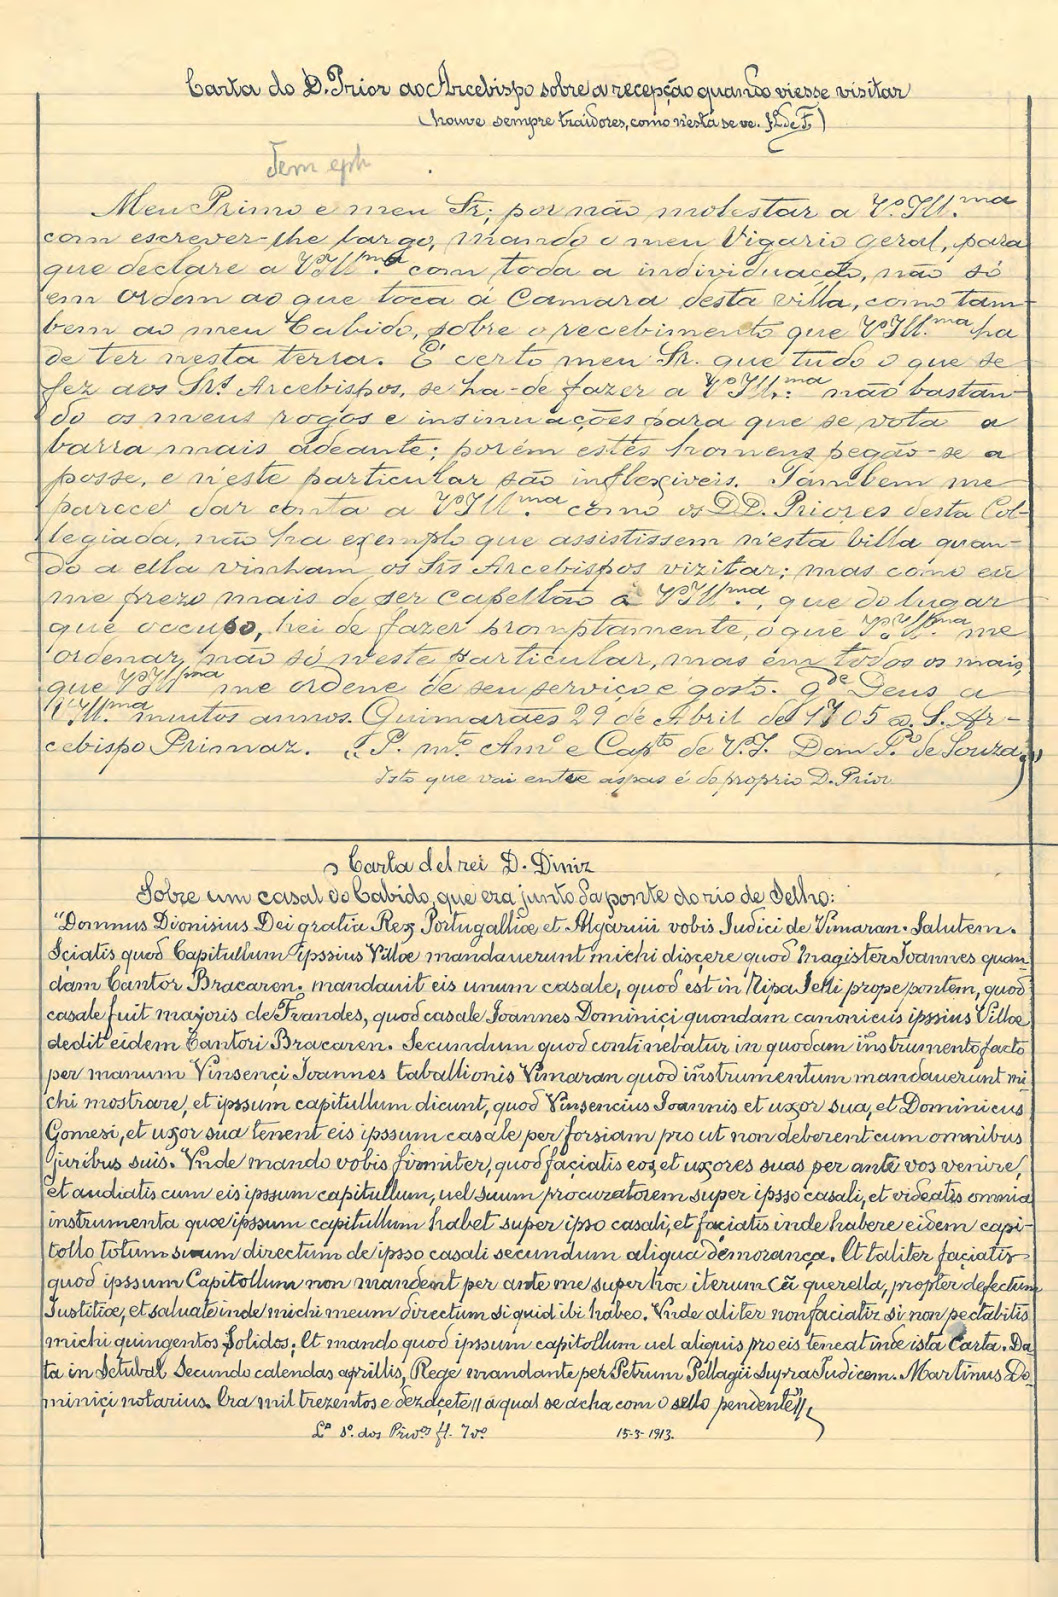 Carta do D. Prior ao Arcebispo sobre a recepção quando viesse visitar
(houve sempre traidores, como n'esta se ve. J. L. de F.)
Tem eph
Meu Primo e meu Sr; por não molestar a V.ª Ill.ma
com escrever-lhe largo, mando o meu Vigario geral, para
que declare a V.ª Ill.ma com toda a individuação, não só
em ordem ao que toca á Camara desta villa, como tam-
bem ao meu Cabido, sobre o recebimento que V.ª Ill.ma ha
de ter nesta terra. É certo meu Sr. que tudo o que se
fez aos Srs Arcebispos, se ha-de fazer a V.ª Ill.ma não bastan-
do os meus rogos e insinuações para que se vota a
barra mais adeante; porém estes homens pegão-se a
posse, e n'este particular são inflexiveis. Tambem me
parece dar conta a V.ª Ill.ma como os DD. Priores desta Col-
legiada, não ha exemplo que assistissem n'esta villa quan-
do a ella vinham os Srs Arcebispos vizitar; mas como eu
me prezo mais de ser capellão a V.ª Ill.ma, que do lugar
que occupo, hei de fazer promptamente, o que V.ª Ill.ma me
ordenar, não só n'este particular, mas em todos os mais,
que V.ª Ill.ma me ordene de seu serviço e gosto. g.de Deus a
V.ª Ill.ma muitos annos. Guimarães 29 de Abril de 1705 a. S. Ar-
cebispo Primaz. P. m.to Am.º e Cap.to de V. I. Dom P.º de Souza
Isto que vai entre aspas é do proprio D. Prior
Carta del rei D. Diniz
Sobre um casal do Cabido, que era junto da ponte do rio de Selho:
"Domnus Dionisius Dei gratia Rex Portugalliæ et Algarivii vobis Iudici de Vimaran. Salutem.
Sciatis quod Capitullum ipssius Villæ mandauerunt michi disçere quod Magister Ioannes quon-
dam Cantor Bracaren. mandauit eis unum casale, quod est in Ripa Selli prope pontem, quod
casale fuit majoris de Frandes, quod casale Ioannes Dominiçi quondam canonicus ipssius Villæ
dedit eidem Cantori Bracaren. Secundum quod continebatur in quodam iñstrumento facto
per manum Vinsençi Ioannes taballionis Vimaran quod iñstrumentum mandauerunt mi
chi mostrare, et ipssum capitullum dicunt, quod Vinsencius Ioannis et uxor sua, et Dominicus
Gomesi, et uxor sua tenent eis ipssum casale per forsiam pro ut non deberent cum omnibus
juribus suis. Vnde mando vobis firmiter, quod façiatis eos, et uxores suas per ante vos venire,
et audiatis cum eis ipssum capitullum, uel suum procuratorem super ipsso casali, et videatis omnia
instrumenta quæ ipssum capitullum habet super ipso casali, et faciatis inde habere eidem capi-
tollo totum suum directum de ipsso casali secundum aliqua demorança. Et taliter façiatis
quod ipssum Capitollum non mandent per ante me super hoc iterum cũ querella, propter defectum
Iustitiæ, et saluate inde michi meum directum si quid ibi habeo. Vnde aliter non faciatiz si non pectabitis
michi quingentos Solidos; Et mando quod ipssum capitollum uel aliquis pro eis teneat inde ista Carta. Da-
ta in Setubal Secundo calendas aprillis, Rege mandante per Petrum Pellagii Supra Iudicem. Martinus Do-
miniçi notarius. Era mil trezentos e dezaçete // a qual se acha com o sello pendente //
L.º 5º. dos Priv.os fl. 7 vº. 15-3-1913.